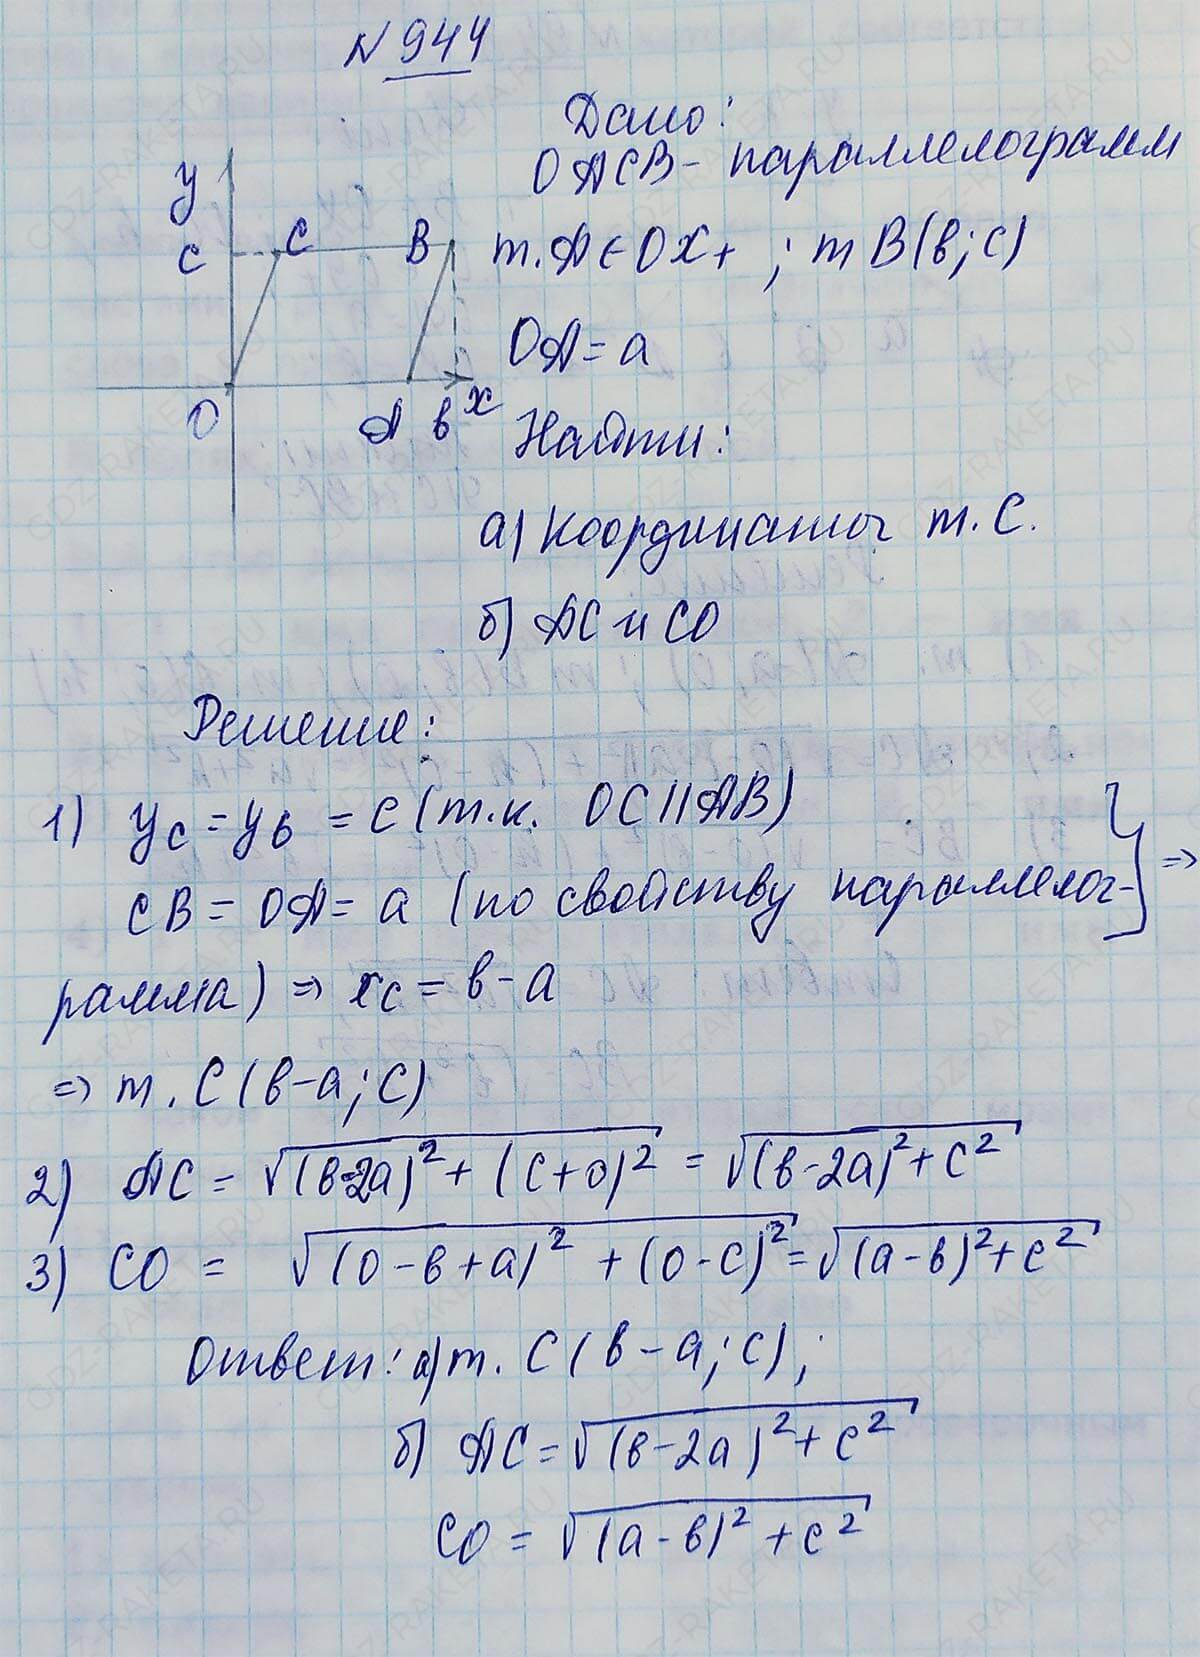 N 944
Дано:
OACB - параллелограмм
т. A ∈ OX+ ; т B(в; c)
OA = a
Найти:
а) Координаты т. C.
б) AC и CO
y
c
C
B
O
A
в
x
Решение:
1) yc = yв = c (т.к. OC || AB)
CB = OA = a (по свойству параллелог-
рамма) ⇒ xc = в - a
} ⇒
⇒ т. C (в - a; c)
2) AC = √((в-2a)² + (c+0)²) = √((в-2a)² + c²)
3) CO = √((0-в+a)² + (0-c)²) = √((a-в)² + c²)
Ответ: а) т. C (в - a; c);
б) AC = √((в-2a)² + c²)
CO = √((a-в)² + c²)
GDZ-RAKETA.RU